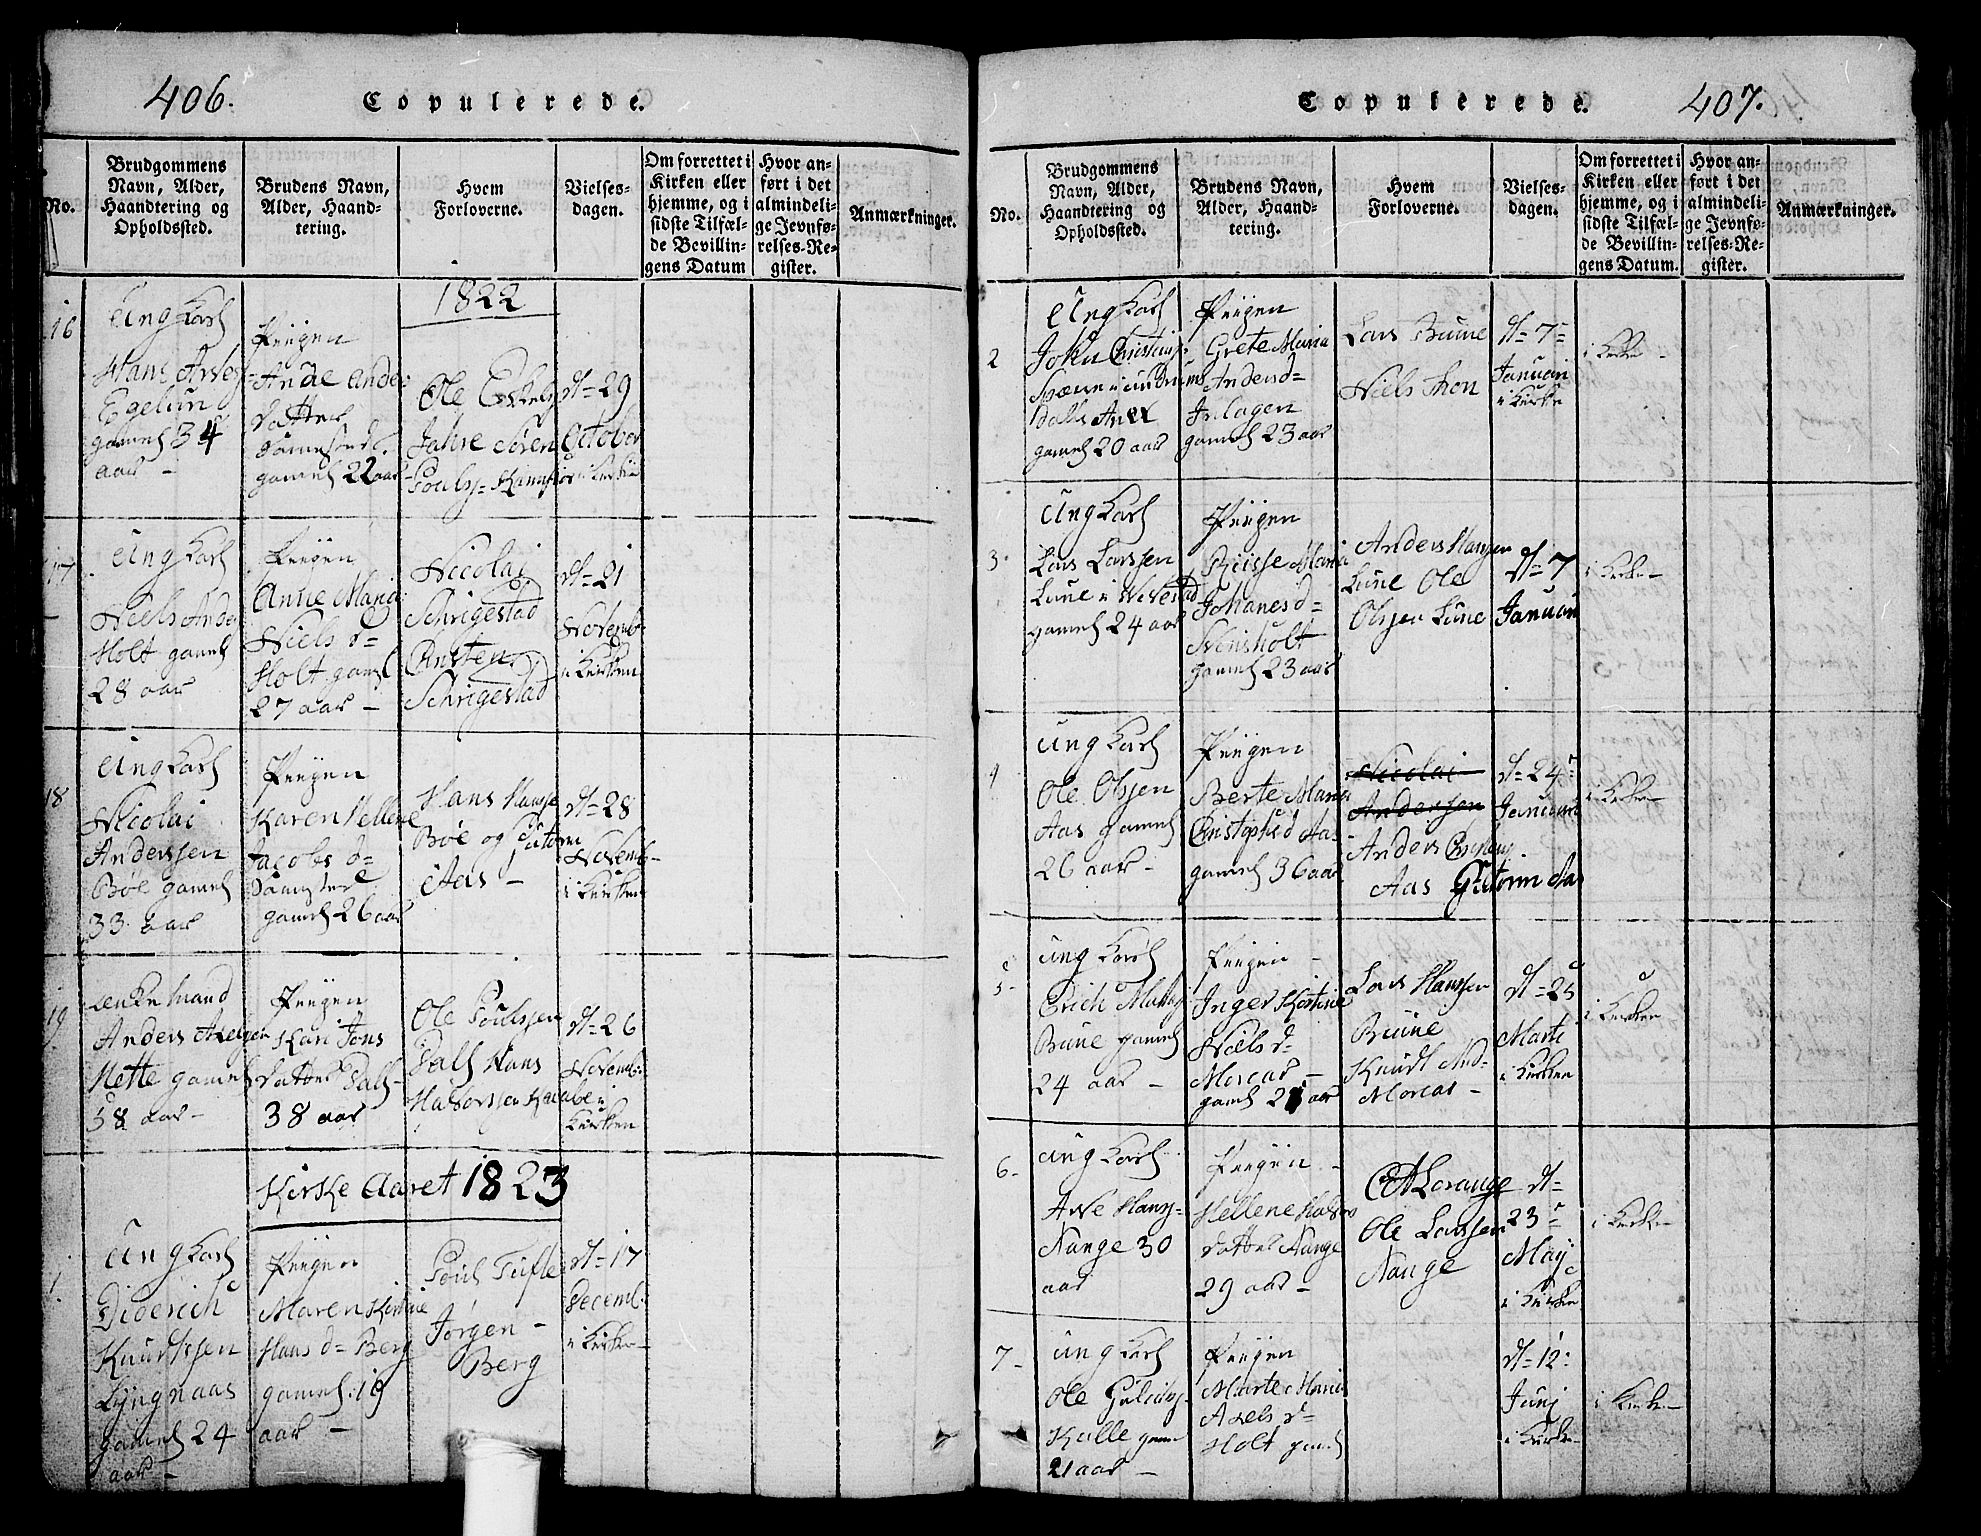 406.
Copulerede.
No.
Brudgommens Navn, Alder, Haandtering og Opholdssted.
Brudens Navn, Alder, Haandtering.
Hvem Forloverne.
Vielsesdagen.
Om forrettet i Kirken eller hjemme, og i sidste Tilfælde Bevillingens Datum
Hvor anført i det almindelige Jevnførelses-Register.
Anmærkninger.
1822
16
Ung Karl
Hans
Egelun
gamel 34
aar -
Piigen
Anne Anders
datter
gamel 22 aar
Ole
Jahre Søren
Pouls-
d= 29
October
i Kirken
17
Ung Karl
Niels Anders
Holt gamel
28 aar
Piigen
Anne Maria
Niels d=
Holt gaml
27 aar -
Nicolai
Schrigestad
Christen
Schrigestad
d= 21
Novemb:
i Kirken
18
Ung Karl
Nicolai
Anderssen
Bøe gamel
33 aar
Piigen
Karen Hellene
Jacobs d=
gamel 26 aar
Hans Hansse
Bøe og Gutorm
Aas -
d= 28
Novemb-
i Kirken
19
Enkemand
Anders Axelsen
Mette gamel
58 aar -
Piigen
Kari Jons
datter Dals-
38 aar
Ole Poulssen
Dals Hans
Halvorssen
d= 26
Novemb:
i
Kirken
Kirke Aaret 1823
1
Ung Karl
Diderich
Knudssen
Lyngnaas
gamel 24
aar -
Piigen
Maren Kirstine
Hans d= Berg
gamel 19
aar -
Poul Tufte
Jørgen -
Berg
d= 17
Decemb:
i Kirken -
Copulerede.
407.
No.
Brudgommens Navn, Alder, Haandtering og Opholdssted.
Brudens Navn, Alder, Haandtering.
Hvem Forloverne.
Vielsesdagen.
Om forrettet i Kirken eller hjemme, og i sidste Tilfælde Bevillingens Datum.
Hvor anført i det almindelige Jevnførelses-Register.
Anmærkninger.
2
Ung Karl
John Christians
gamel 20 aar
Piigen
Grete Maria
Anders d=
gamel 23 aar
Lars Buune
Niels Thon
d= 7=
Januari
i Kirke
i Kirke -
3.
Ung Karl
Lars Larssen
Lune i
gamel 24 aar
Piigen
Maria
Johanes d=
Svensholt
gamel 23 aar
Anders Hanssen
Lune Ole
Olssen Lune
d= 7
Januari
i Kirke -
4
Ung Karl
Ole Olssen
Aas gamel
26 aar -
Piigen
Berte Maria
Christophs d Aas
gamel 36 aar
Nicolai
Anderssen
Anders
Aas Guttorm Aas
d= 24=
Januari
i Kirke -
5-
Ung Karl
Erich
Bune gamel
24 aar -
Piigen -
Inger Kirstine
Niels d=
Morcar -
gamel 21 aar
Lars Hanssen
Buune
Knudt And-
Morcar -
d= 25
Marti
i Kirken
i Kirken
6-
Ung Karl
Arve Hans-
Nange 30
aar
Piigen -
Hellene Halvors
datter Nange
29 aar -
Lorange
Ole Larssen
Nange
d=
23=
May
i Kirken
i Kirke -
7-
Ung Karl
Ole
Kalle gam
21 aar -
Piigen
Marte Maria
Axels d=
Holt gamel
d= 12=
Junj
i Kirke -
i Kirke -